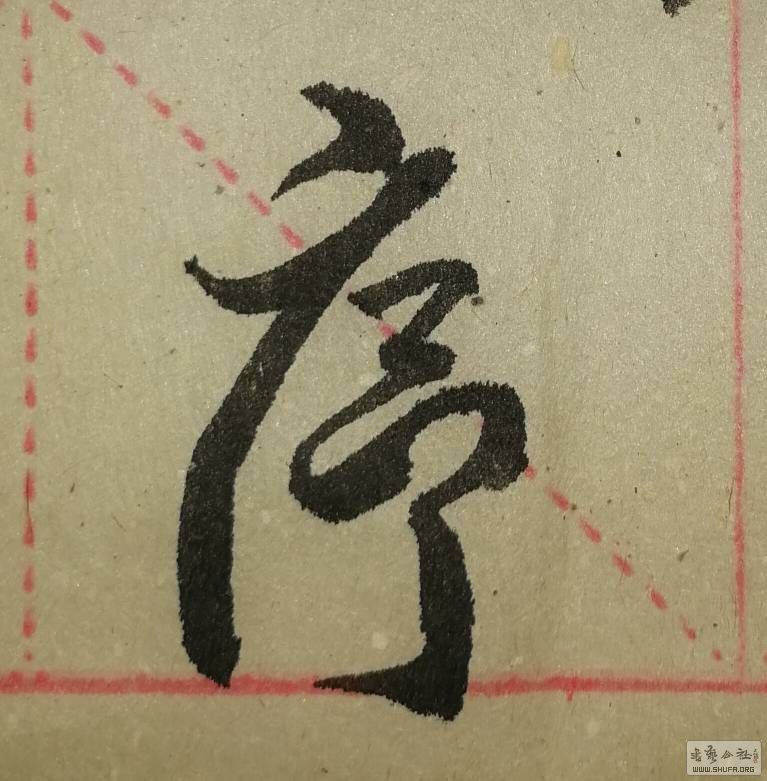 序
书艺公社
WWW.SHUFA.ORG